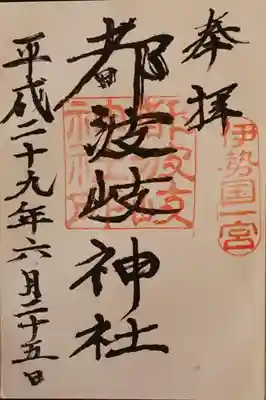 奉拝
伊勢国一宮
都波岐神社
都波岐
神社
平成二十九年六月二十五日